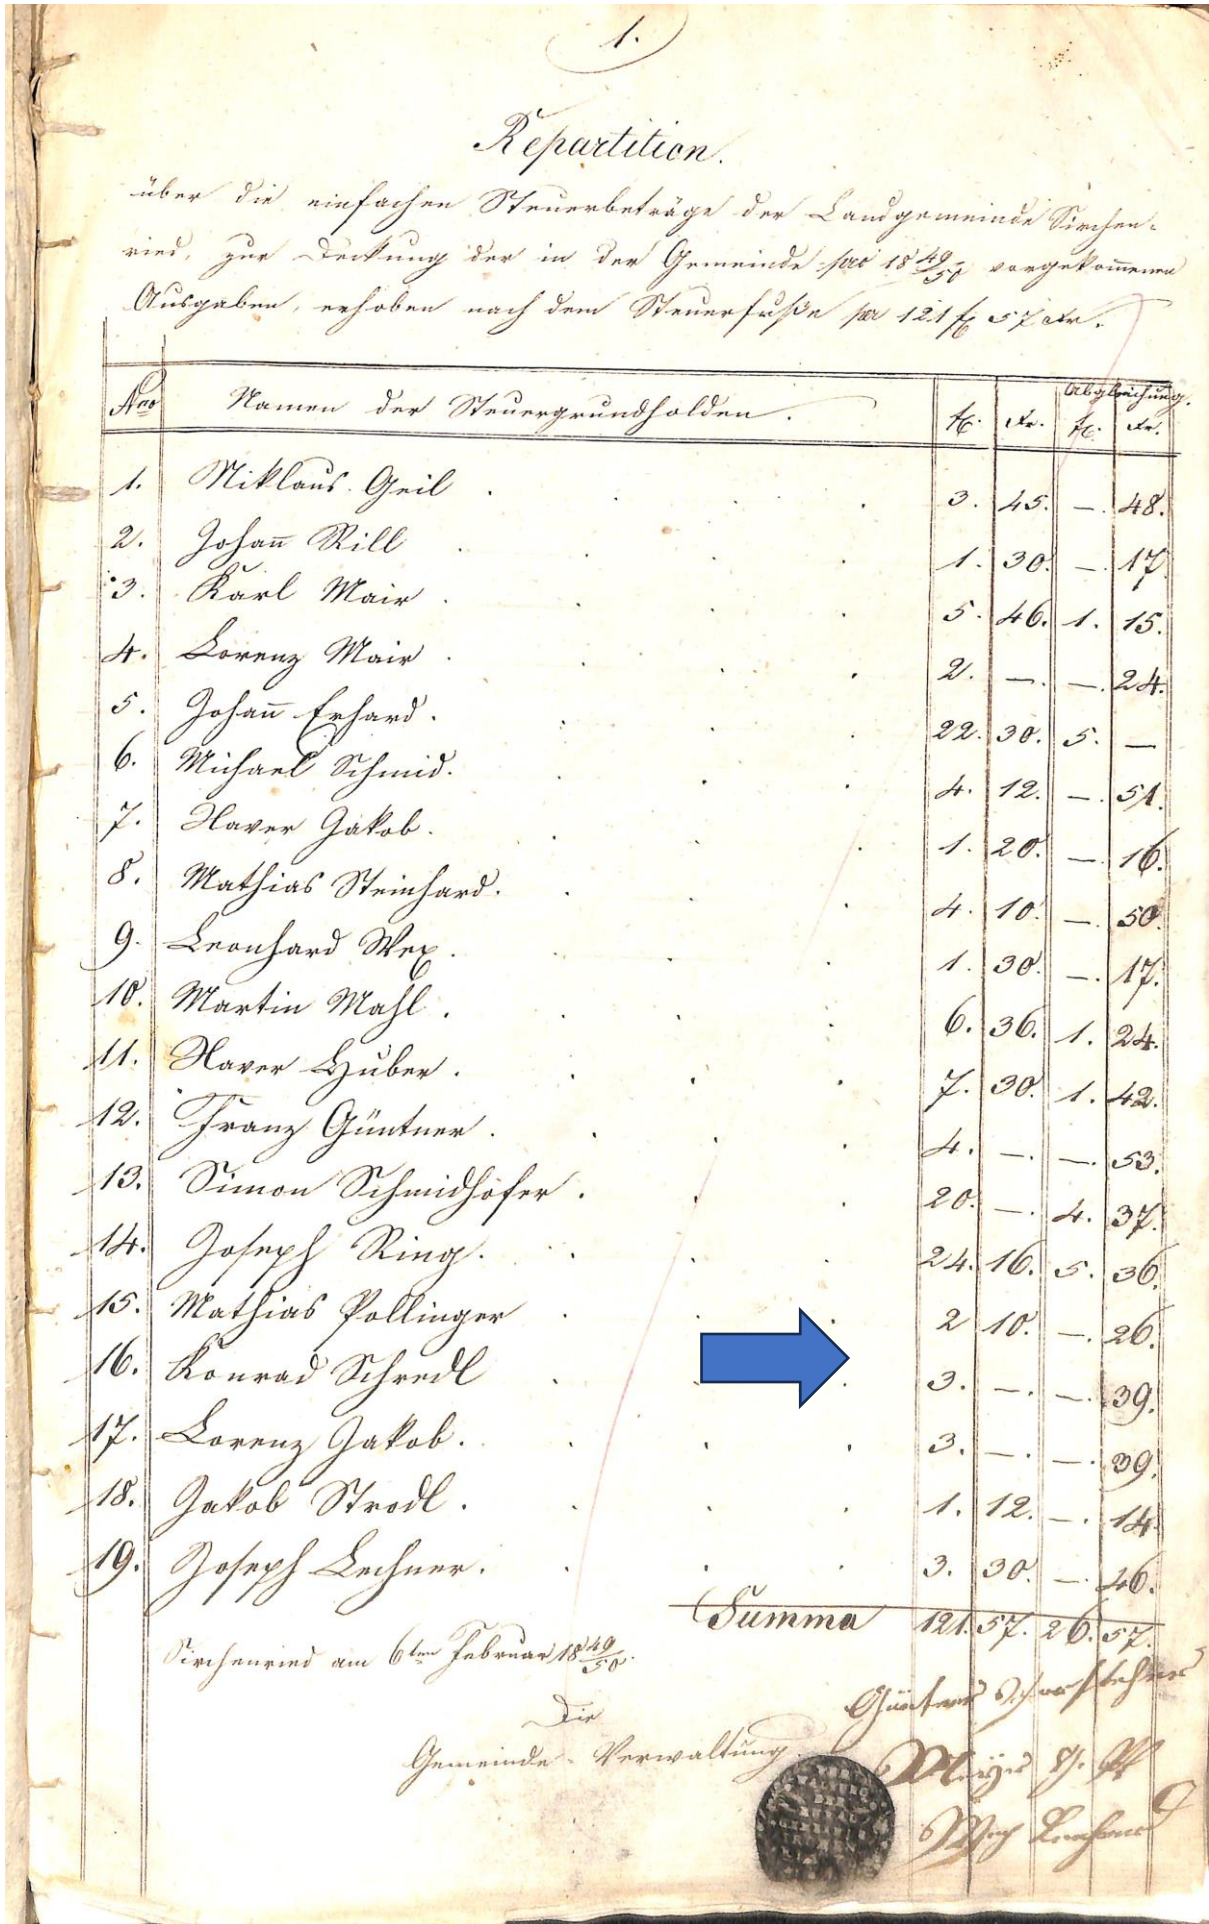 1.
Repartition.
über die einfachen Steuerbeträge der Landgemeinde Sirchen-
ried, zur Deckung der in der Gemeinde pro 18 49/50 vorgekom̅enen
Ausgaben, erhoben nach dem Steuerfuße per 121 fl 57 Xr.
Abgleichung.
Nro Namen der Steuergrundholden. fl. Xr. fl. Xr.
1. Niklaus Geil . 3. 45. —. 48.
2. Johan̅ Rill 1. 30. —. 17.
3. Karl Mair . 5. 46. 1. 15.
4. Lorenz Mair . 2. —. —. 24.
5. Johan̅ Erhard. 22. 30. 5. —
6. Michael Schmid. 4. 12. —. 51.
7. Xaver Jakob. 1. 20. —. 16.
8. Mathias Steinhard. 4. 10. —. 50.
9. Leonhard Wex. 1. 30. —. 17.
10. Martin Mahl. 6. 36. 1. 24.
11. Xaver Huber. 7. 30. 1. 42.
12. Franz Güntner. 4. —. —. 53.
13. Simon Schmidhofer. 20. —. 4. 37.
14. Joseph Ring. 24. 16. 5. 36.
15. Mathias Pollinger 2 10. —. 26.
16. Konrad Schredl 3. —. —. 39.
17. Lorenz Jakob. 3. —. —. 39.
18. Jakob Strodl. 1. 12. —. 14.
19. Joseph Lechner. 3. 30. —. 46.
Summa 121. 57. 26. 57.
Sirchenried am 6ten Februar 18 49/50.
Die
Gemeinde-Verwaltung.
Güntner Vorsteher